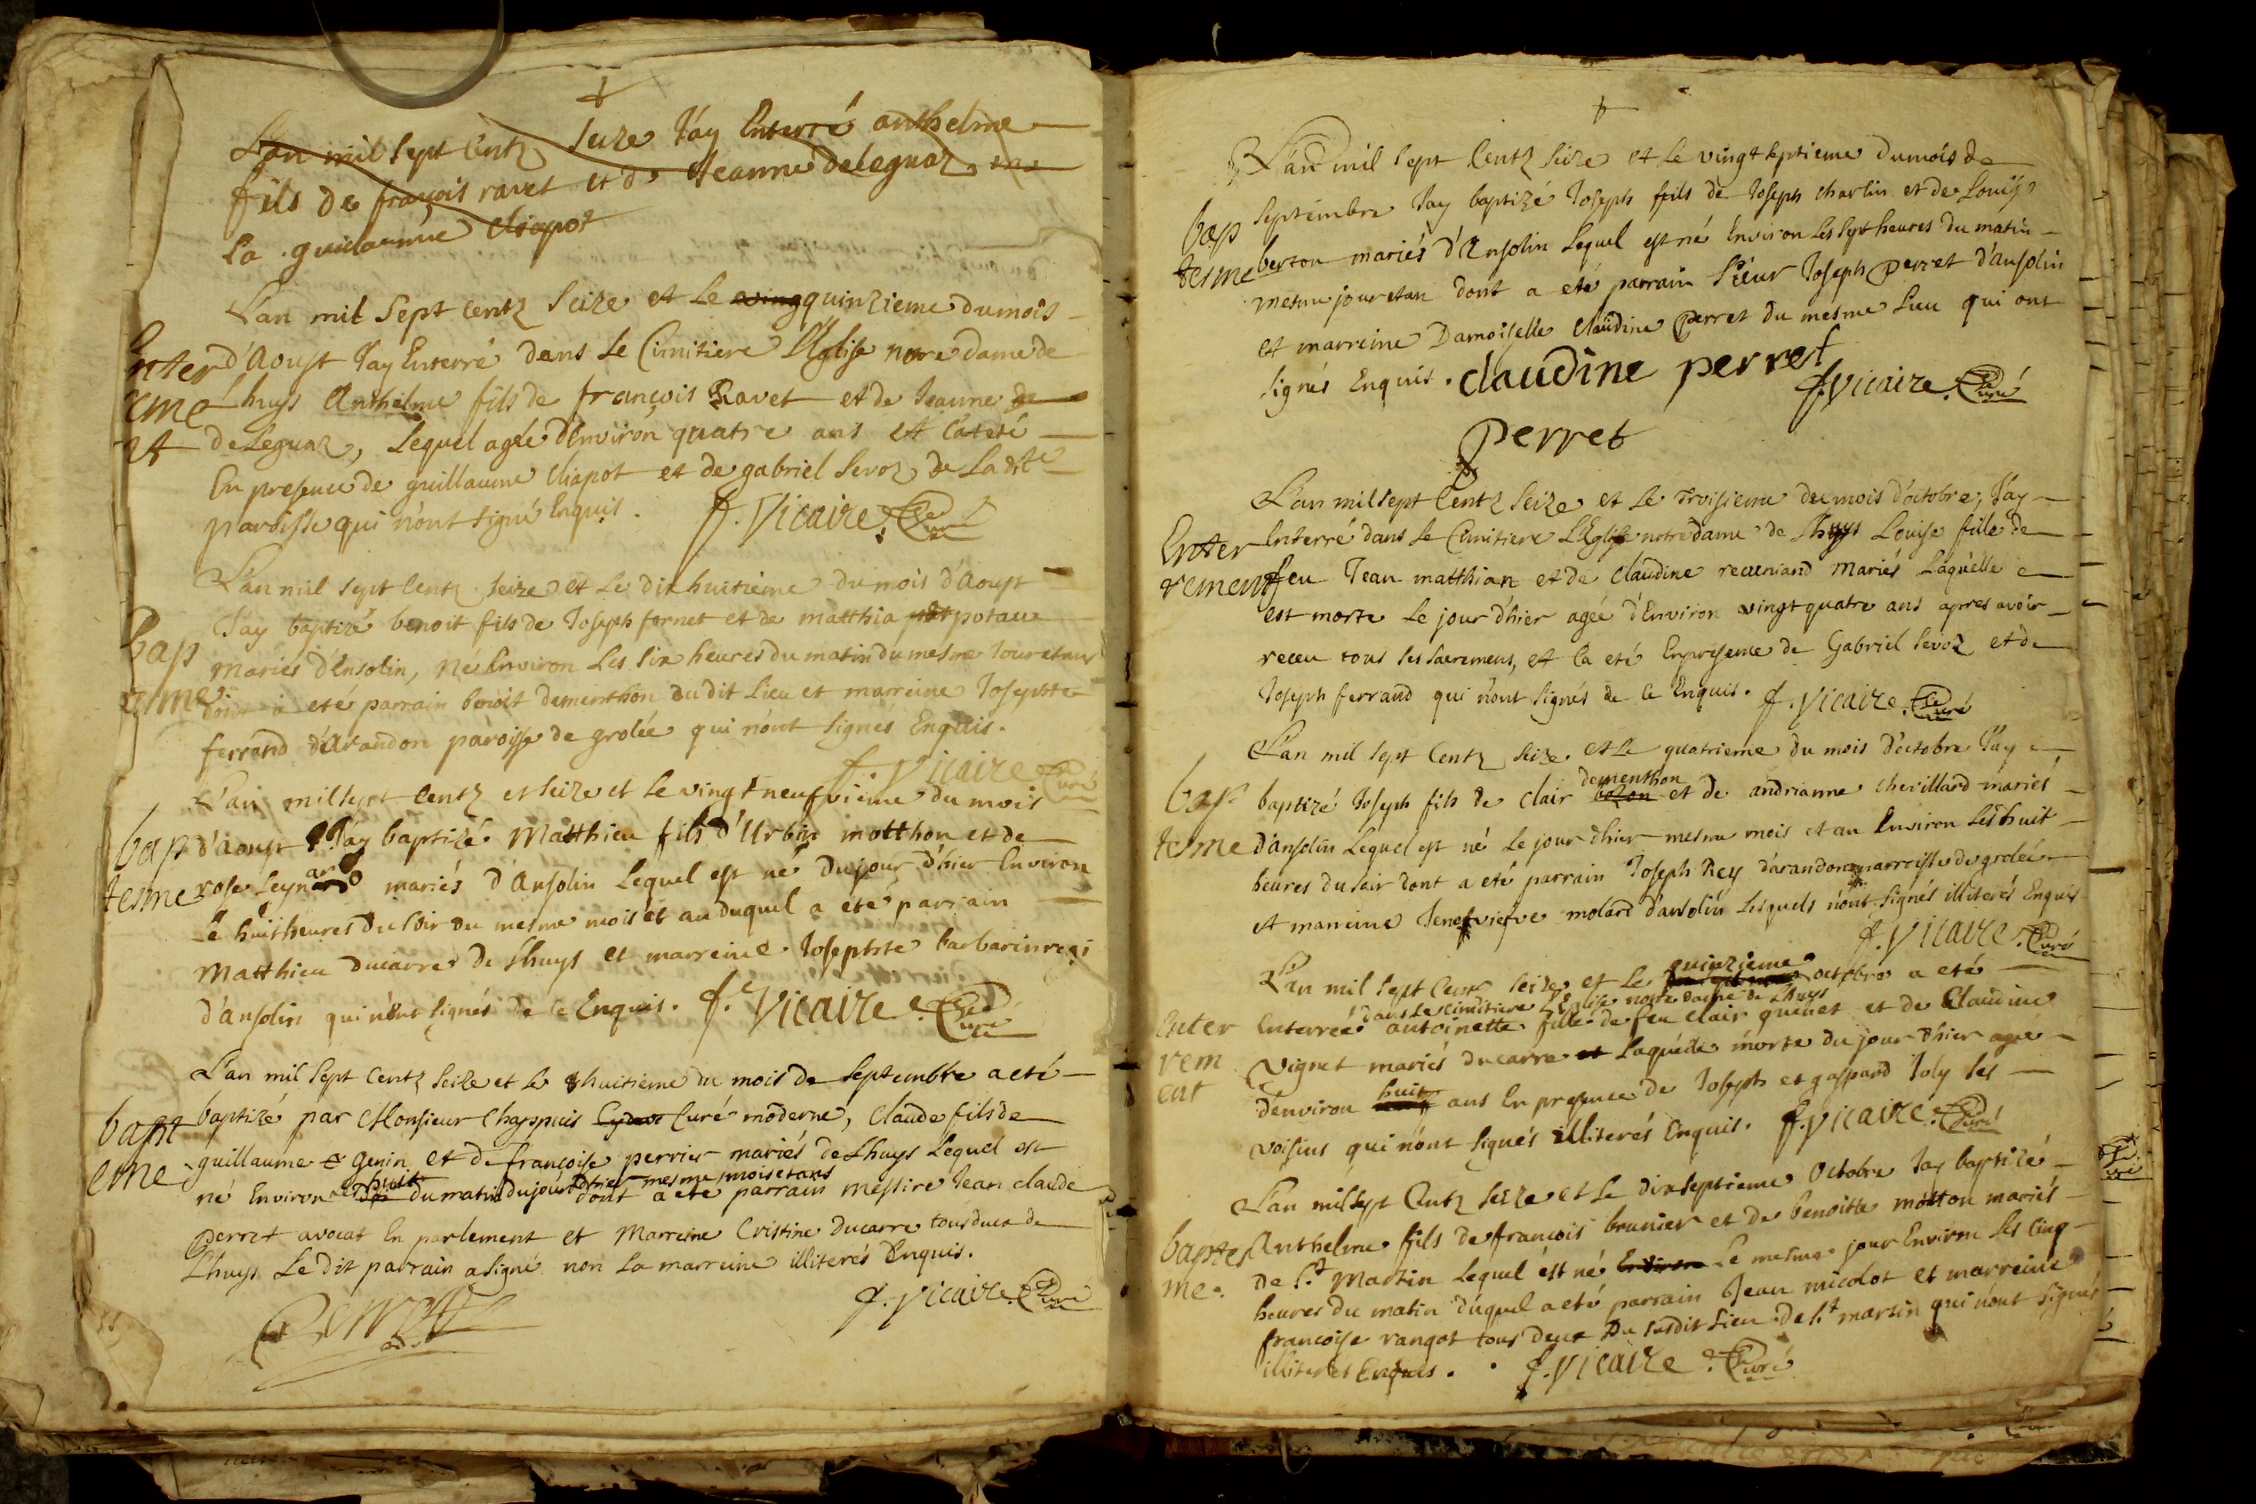 L'an mil sept Centz seize J'ay Enterré anthelme
fils de françois ravet et de Jeanne deleguaz en
La guillaumie Cliapot
L'an mil sept centz seize et le ving quinzieme du mois
Enter d'Aoust J'ay Enterré dans le Cimitiere L'Eglise notre dame de
eme Lhuys Anthelme fils de françois Ravet et de Jeanne de
et deleguaz, Lequel agée d'Environ quatre ans et c'a eté
En presence de guillaume Cliapot et de gabriel sevoz de Ladite
paroisse qui n'ont signé Enquis. f. Vicaire. Curé
L'an mil sept Centz seize et le dix huitieme du mois d'Aoust
J'ay baptizé benoit fils de Joseph fornet et de matthia pot potau
bap mariés d'Ensolin, né Environ les six heures du matin du mesme Jour et an
eme dont a eté parrain benoit dementhon du dit Lieu et marreine Josephte
ferrand d'Arandon paroisse de grolée qui n'ont signés Enquis.
f. Vicaire Curé
L'an mil sept Centz et seize et le vingt neufvieme du mois
bap d'Aoust J'ay baptizé Matthieu fils d'Urbin motthon et de
tesme rose Leynard mariés d'Ansolin Lequel est né du jour d'hier Environ
Le huit heures du soir du mesme mois et an duquel a eté parrain
Matthieu ducarre de Lhuys et marreine Josephte barbarin
d'ansolin qui n'ont signés de ce Enquis. f. Vicaire. Curé
L'an mil sept Centz seize et le huitieme du mois de septembre a eté
bapt baptizé par Monsieur Chappuis Curé moderne, Claude fils de
eme guillaume genin et de françoise perrier mariés de Lhuys Lequel est
né Environ les huit du matin du jour d'hier mesme mois et ans dont a eté parrain messire Jean claude
perret avocat En parlement et Marreine Cristine ducarre tous deux de
Lhuys Le dit parrain a signé non La marreine illiterés Enquis.
Perret
f. Vicaire. Curé
L'an mil sept Centz seize et le vingt septieme du mois de
bap septembre J'ay baptizé Joseph fils de Joseph charlin et de Louise
tesme berton mariés d'Ansolin Lequel est né Environ les sept heures du matin
mesme jour et an dont a eté parrain Sieur Joseph Perret d'ansolin
et marreine Damoiselle Claudine Perret du mesme Lieu qui ont
signés Enquis. claudine perret
f. Vicaire. Curé
Perret
L'an mil sept Centz seize et le troisieme du mois d'octobre, J'ay
Enter Enterré dans le Cimitiere L'Eglise notre dame de Lhuys Louise fille de
rement feu Jean matthian et de Claudine mariés Laquelle
est morte le jour d'hier agée d'Environ vingt quatre ans apres avoir
receu tous ses sacremens, et c'a eté En presence de Gabriel sevoz et de
Joseph ferrand qui n'ont signés de ce Enquis. f. Vicaire. Curé
L'an mil sept Centz seize et le quatrieme du mois d'octobre J'ay
bap baptizé Joseph fils de clair bozon dementhon et de andrianne chevillard mariés
tesme d'ansolin Lequel est né Le jour d'hier mesme mois et an Environ les huit
heures du soir dont a eté parrain Joseph Rey d'arandon parroisse de grolée
et marreine Jenefviefve molard d'ansolin Lesquels n'ont signés illiterés Enquis
f. Vicaire. Curé
L'an mil sept Centz seize et le quinzieme octobre a eté
Enter Enterrée dans le cimitiere L'Eglise notre dame de Lhuys antoinette fille de feu Clair guenet et de Claudine
rem Vignet mariés ducarre et Laquelle morte du jour d'hier agée
ent d'environ huit ans En presence de Joseph et gaspard Joly ses
voisins qui n'ont signés illiterés Enquis. f. Vicaire. Curé
L'an mil sept Centz seize et le dix septieme Octobre J'ay baptizé
baptes Anthelme fils de francois brunier et de benoitte motton mariés
me. de St Martin Lequel est né Environ Le mesme jour Environ les cinq
heures du matin duquel a eté parrain Jean micolot et marreine
francoise rangot tous deux du susdit Lieu de St martin qui n'ont signés
illiterés Enquis. f. Vicaire. Curé